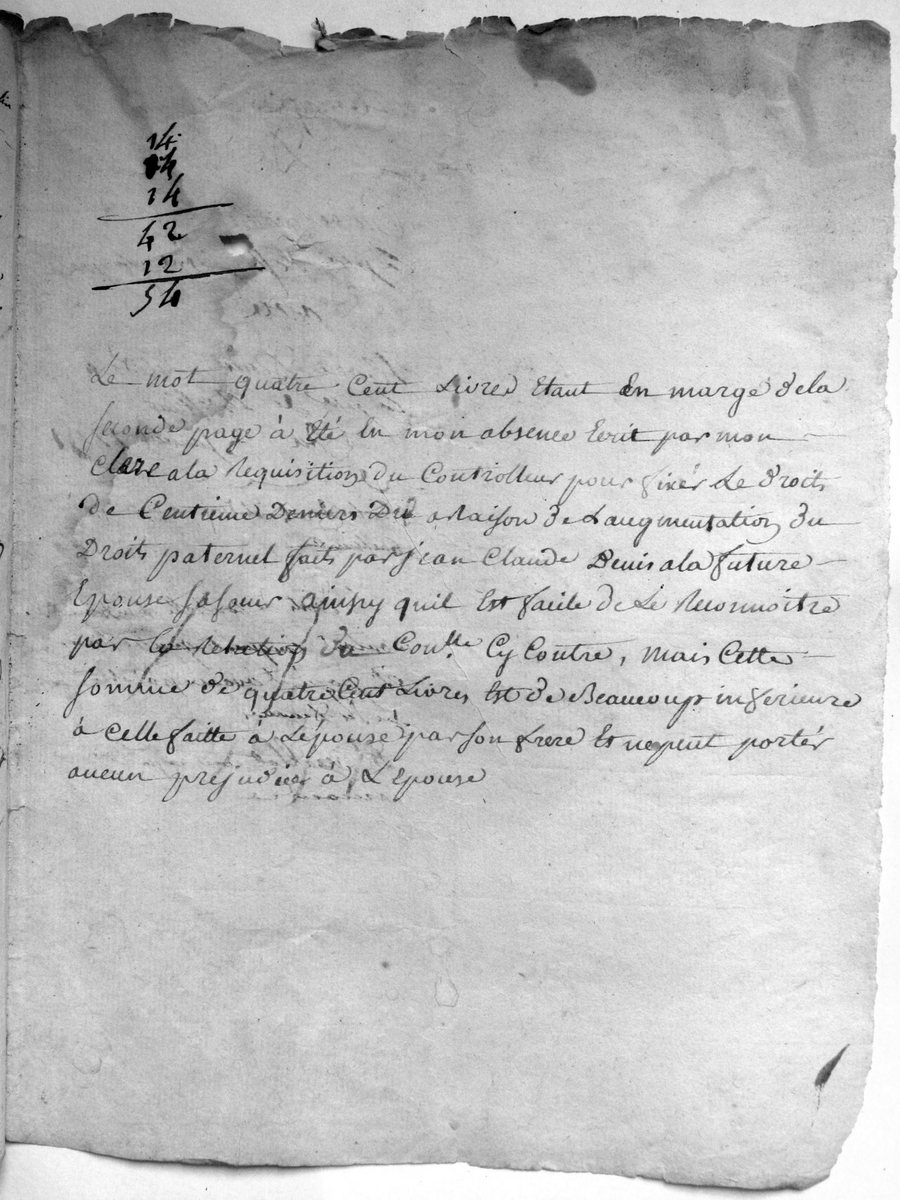 14
14
14
42
12
54
Le mot quatre Cent Livres Etant En marge de la
seconde page à Eté En mon absence Ecrit par mon
Clerc a la Requisition du Controlleur pour fixér Le Droits
de Centieme Deniers Du a Raison de Laugmentation du
Droits paternel faits par jean Claude Denis a la future
Epouse sa soeur ainsy quil Est facile de Le Reconnoitre
par la Relation du Conlle Cy Contre, mais Cette
somme de quatre Cent Livres Est de Beaucoup inferieure
à celle faitte à Lepouse par son frere Et ne peut portér
aucun prejudice à LEpouse